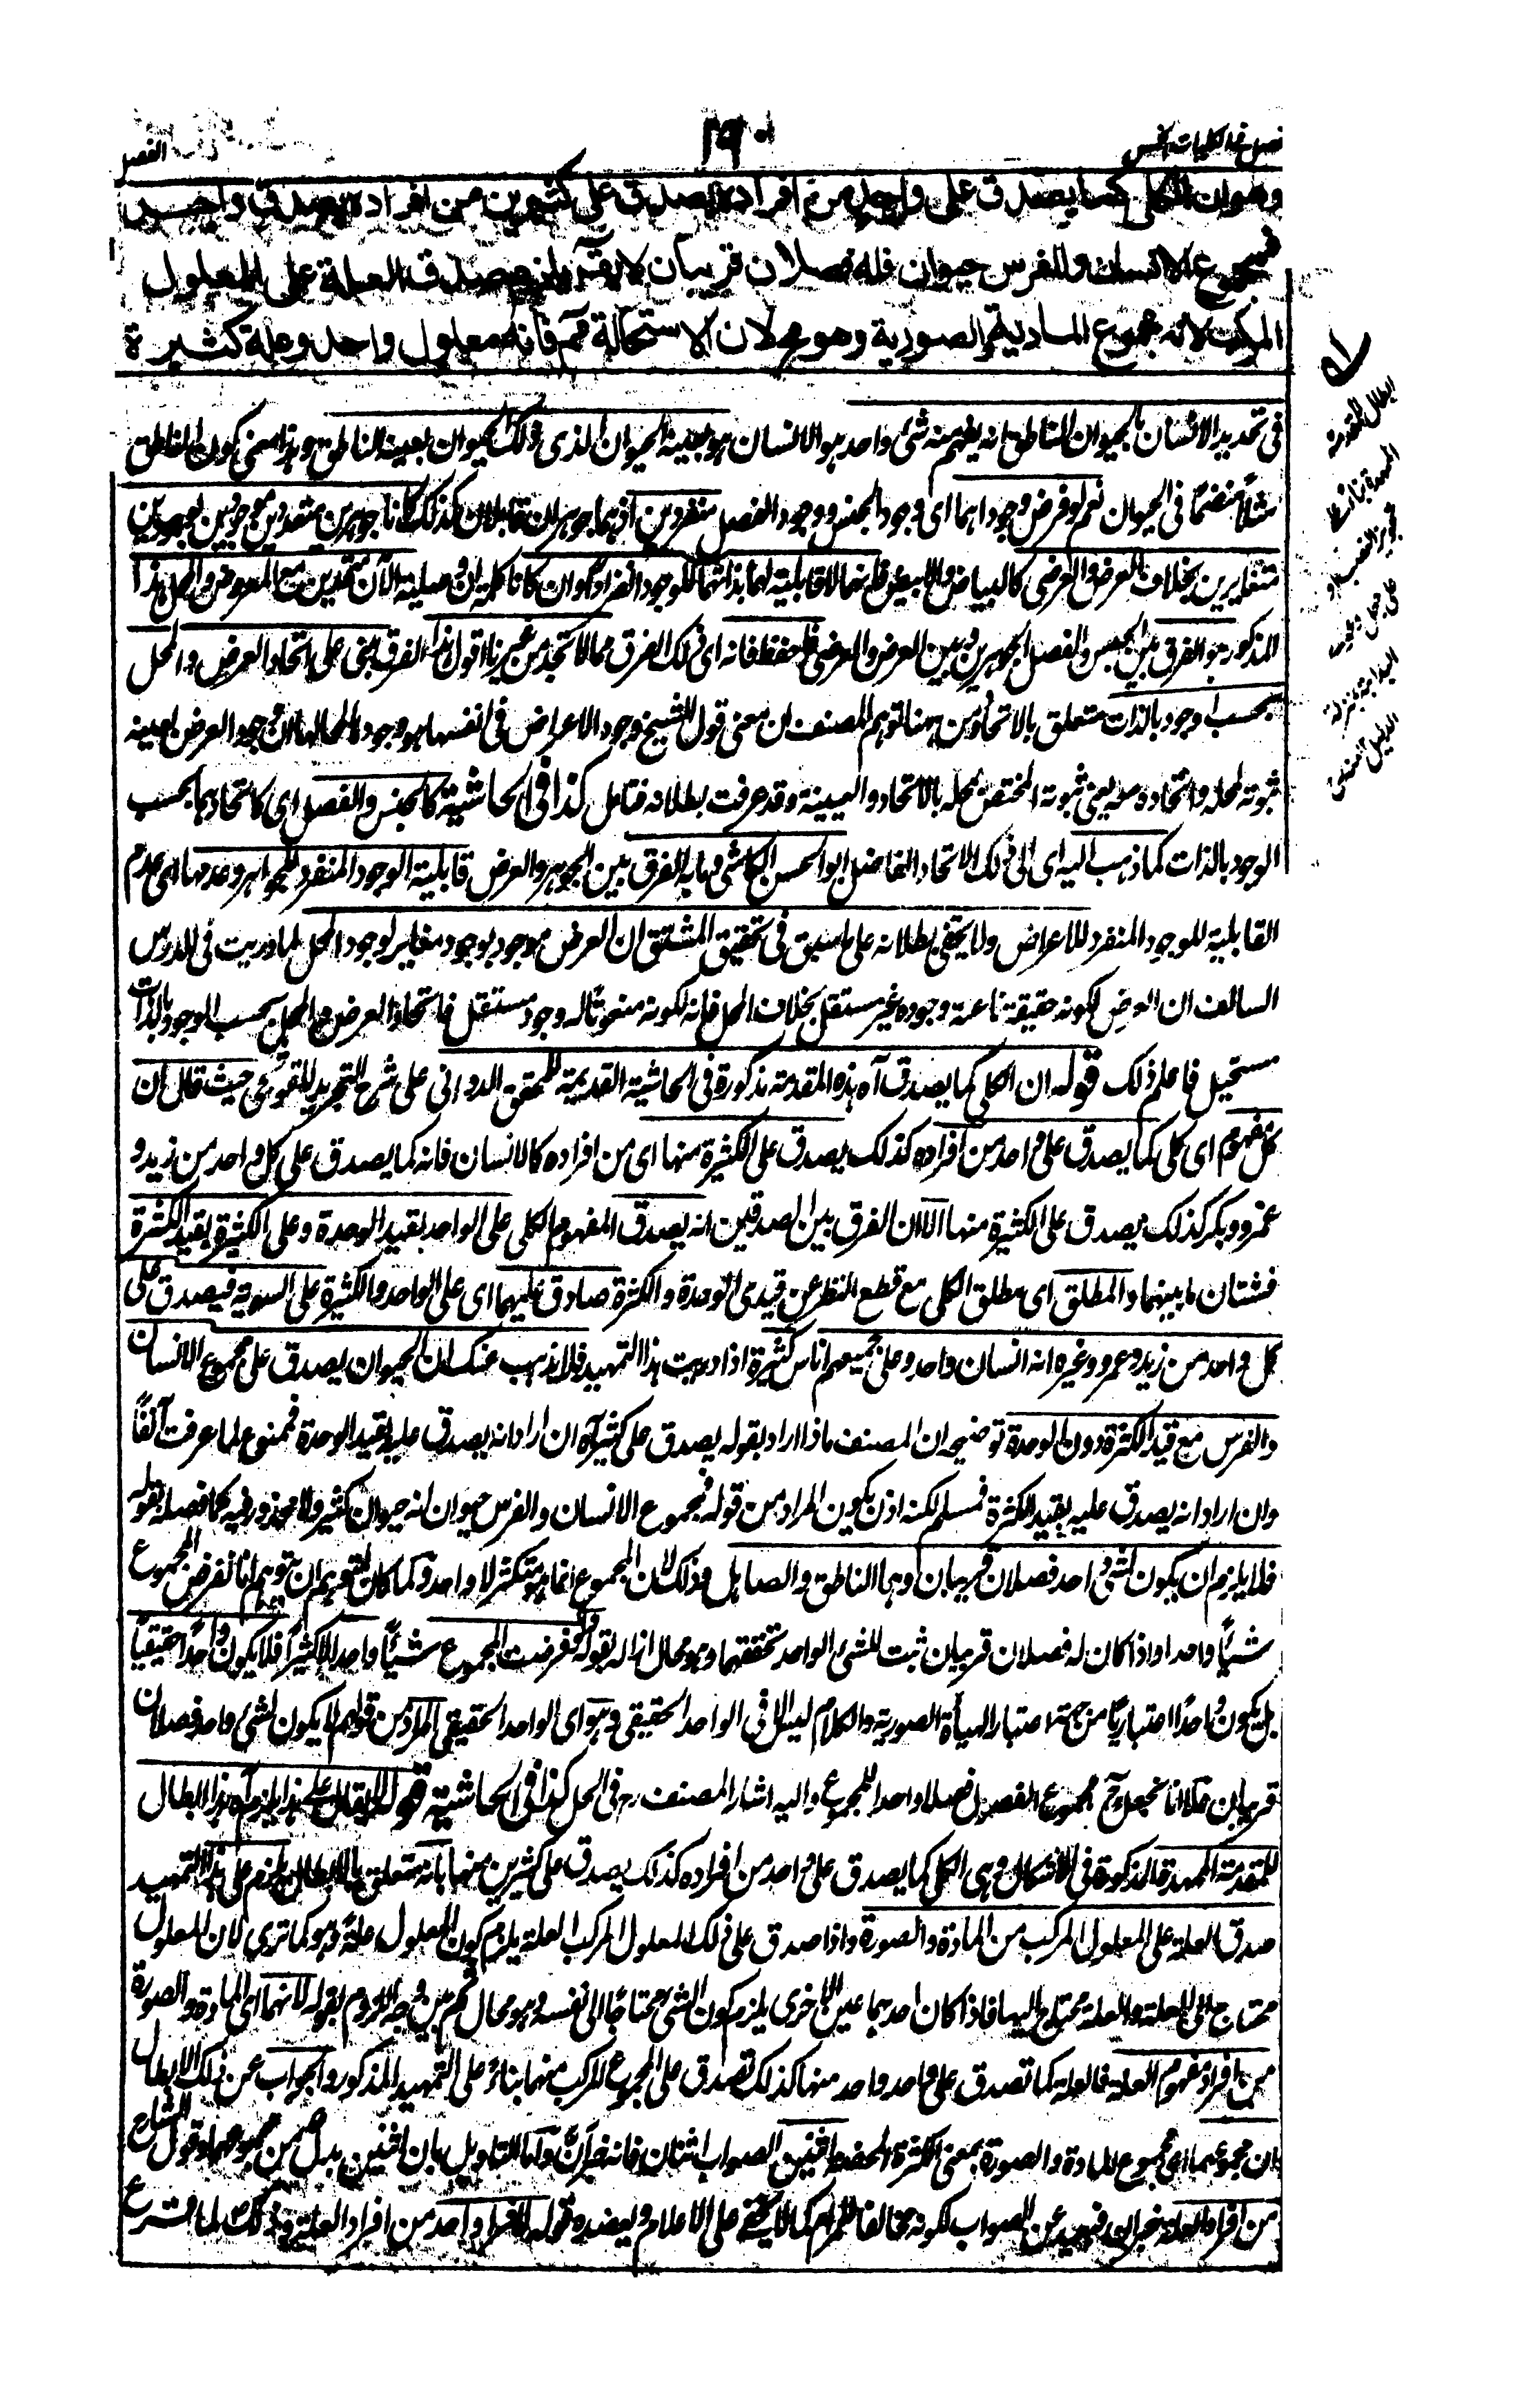 فصل فی الکلیات الخمس
۱۹۰
الفصل
وهو ان الكلي كما يصدق على واحد من افراده يصدق على كثيرين من افراده بصدق واحد
فمجموع الانسان والفرس حيوان فله فصلان قريبان لا يقال يلزم صدق العلة على المعلول
المركب لانه مجموع المادية والصورية وهو محال لان الاستحالة مم فانه معلول واحد وعلة كثيرة
فی تحدید الانسان بالحیوان الناطق انه یفهم منه شئ واحد هو الانسان هو بعینه الحیوان الذی ذلک الحیوان بعینه الناطق وهذا معنی کون الناطق
مثلاً منضمًا فی الحیوان نعم لو فرض وجودهما ای وجود الجنس ووجود الفصل منفردین اذ هما جوهران قابلان کذلک کانا جوهرین
متغایرین بخلاف العرض والعرضی کالبیاض والابیض فانهما لا قابلیة لهما بذاتهما للوجود انفرادًا وان کانا
المذکور هو الفرق بین الجنس والفصل الجوهریین وبین العرض والعرضی فاحفظ فانه ای ذلک الفرق مما لا تجد من غیرنا اقول هذا الفرق مبنی علی اتحاد العرض والمحل
بحسب الوجود بالذات متعلق بالاتحاد ومن ههنا توهم المصنف ان معنی قول الشیخ وجود الاعراض فی انفسها هو وجودها لمحالها ان وجود العرض بعینه
ثبوته لمحله واتحاده معه یعنی ثبوته المختص بمحله بالاتحاد والعینیة وقد عرفت بطلانه فتامل کذا فی الحاشیة کالجنس والفصل ای کاتحادهما بحسب
الوجود بالذات کما ذهب الیه ای الی ذلک الاتحاد الفاضل ابو الحسن الکاشی وما به الفرق بین الجوهر والعرض قابلیة الوجود المنفرد للجواهر وعدمها ای عدم
القابلیة للوجود المنفرد للاعراض ولا یخفی بطلانه علی ما سبق فی تحقیق المشتق ان العرض موجود بوجود مغایر لوجود المحل لما دریت فی الدرس
السالف ان العرض لکونه حقیقة ناعتة وجوده غیر مستقل بخلاف المحل فانه لکونه منعوتًا له وجود مستقل فاتحاد العرض والمحل بحسب الوجود بالذات
مستحیل فاعلم ذلک قوله ان الکلی کما یصدق آه هذه المقدمة مذکورة فی الحاشیة القدیمة للمحقق الدوانی علی شرح التجرید للقوشجی حیث قال ان
کل مفهوم ای کلی کما یصدق علی واحد من افراده کذلک یصدق علی الکثیرة منها ای من افراده کالانسان فانه کما یصدق علی کل واحد من زید و
عمرو وبکر کذلک یصدق علی الکثیرة منها الا ان الفرق بین الصدقین انه یصدق المفهوم الکلی علی الواحد بقید الوحدة وعلی الکثیرة بقید الکثرة
فشتان ما بینهما والمطلق ای مطلق الکلی مع قطع النظر عن قیدی الوحدة والکثرة صادق علیهما ای علی الواحد والکثیرة علی السویة فیصدق علی
کل واحد من زید وعمرو وغیره انه انسان واحد وعلی جمیعهم اناس کثیرة اذا دریت هذا التمهید فلا یذهب عنک ان الحیوان یصدق علی مجموع الانسان
والفرس مع قید الکثرة دون الوحدة توضیحه ان المصنف ماذا اراد بقوله یصدق علی کثیر آه ان اراد انه یصدق علیه بقید الوحدة فممنوع لما عرفت آنفًا
وان اراد انه یصدق علیه بقید الکثرة فمسلم لکنه اذن یکون المراد من قوله فمجموع الانسان والفرس حیوان انه حیوان کثیر ولا محذور فیه کما فصله بقوله
فلا یلزم ان یکون لشئ واحد فصلان قریبان وهما الناطق والصاهل وذلک لان المجموع انما هو متکثر لا واحد وکما کان لمتوهم ان یتوهم انا نفرض المجموع
شیئًا واحدا واذا کان له فصلان قریبان ثبت للشئ الواحد تحققهما وهو محال ازاله بقوله ولو فرضت المجموع شیئًا واحدا لا کثیرًا فلا یکون واحدًا حقیقیًا
بل یکون واحدًا اعتباریًا من جهة اعتبار الهیأة الصوریة والکلام لیس الا فی الواحد الحقیقی وهو ای الواحد الحقیقی المراد من قولهم لا یکون لشئ واحد فصلان
قریبان مثلا انا نجعل مجموع الفصول فصلا واحدا للمجموع والیه اشار المصنف رح فی المحل کذا فی الحاشیة قوله لا یقال علی هذا یلزم آه هذا ابطال
للمقدمة الممهدة المذکورة فی الاشکال وهی الکلی کما یصدق علی واحد من افراده کذلک یصدق علی کثیرین منها بانه متعلق بالابطال یلزم علی هذا التمهید
صدق العلة علی المعلول المرکب من المادة والصورة واذا صدق علی ذلک المعلول المرکب العلة یلزم کون المعلول علةً وهو کما تری لان المعلول
محتاج الی العلة والعلة محتاج الیها فاذا کان احدهما عین الاخری یلزم کون الشئ محتاجًا الی نفسه وهو محال ثم بین وجه اللزوم بقوله لانهما ای المادة والصورة
من افراد مفهوم العلة فالعلة کما تصدق علی واحد واحد منها کذلک تصدق علی المجموع المرکب منها بناءً علی التمهید المذکور والجواب عن ذلک الابطال
ان مجموعهما ای مجموع المادة والصورة بمعنی الکثرة المحضة اثنین الصواب اثنان فانه خبر ان واما التاویل بان اثنین بدل من مجموعهما وقول الشارح
من افراد العلة خبر ان فبعید عن الصواب لکونه مخالفا للمرام کما لا یخفی علی الاعلام ویعضده قوله لا فرد واحد من افراد العلة وذلک لما